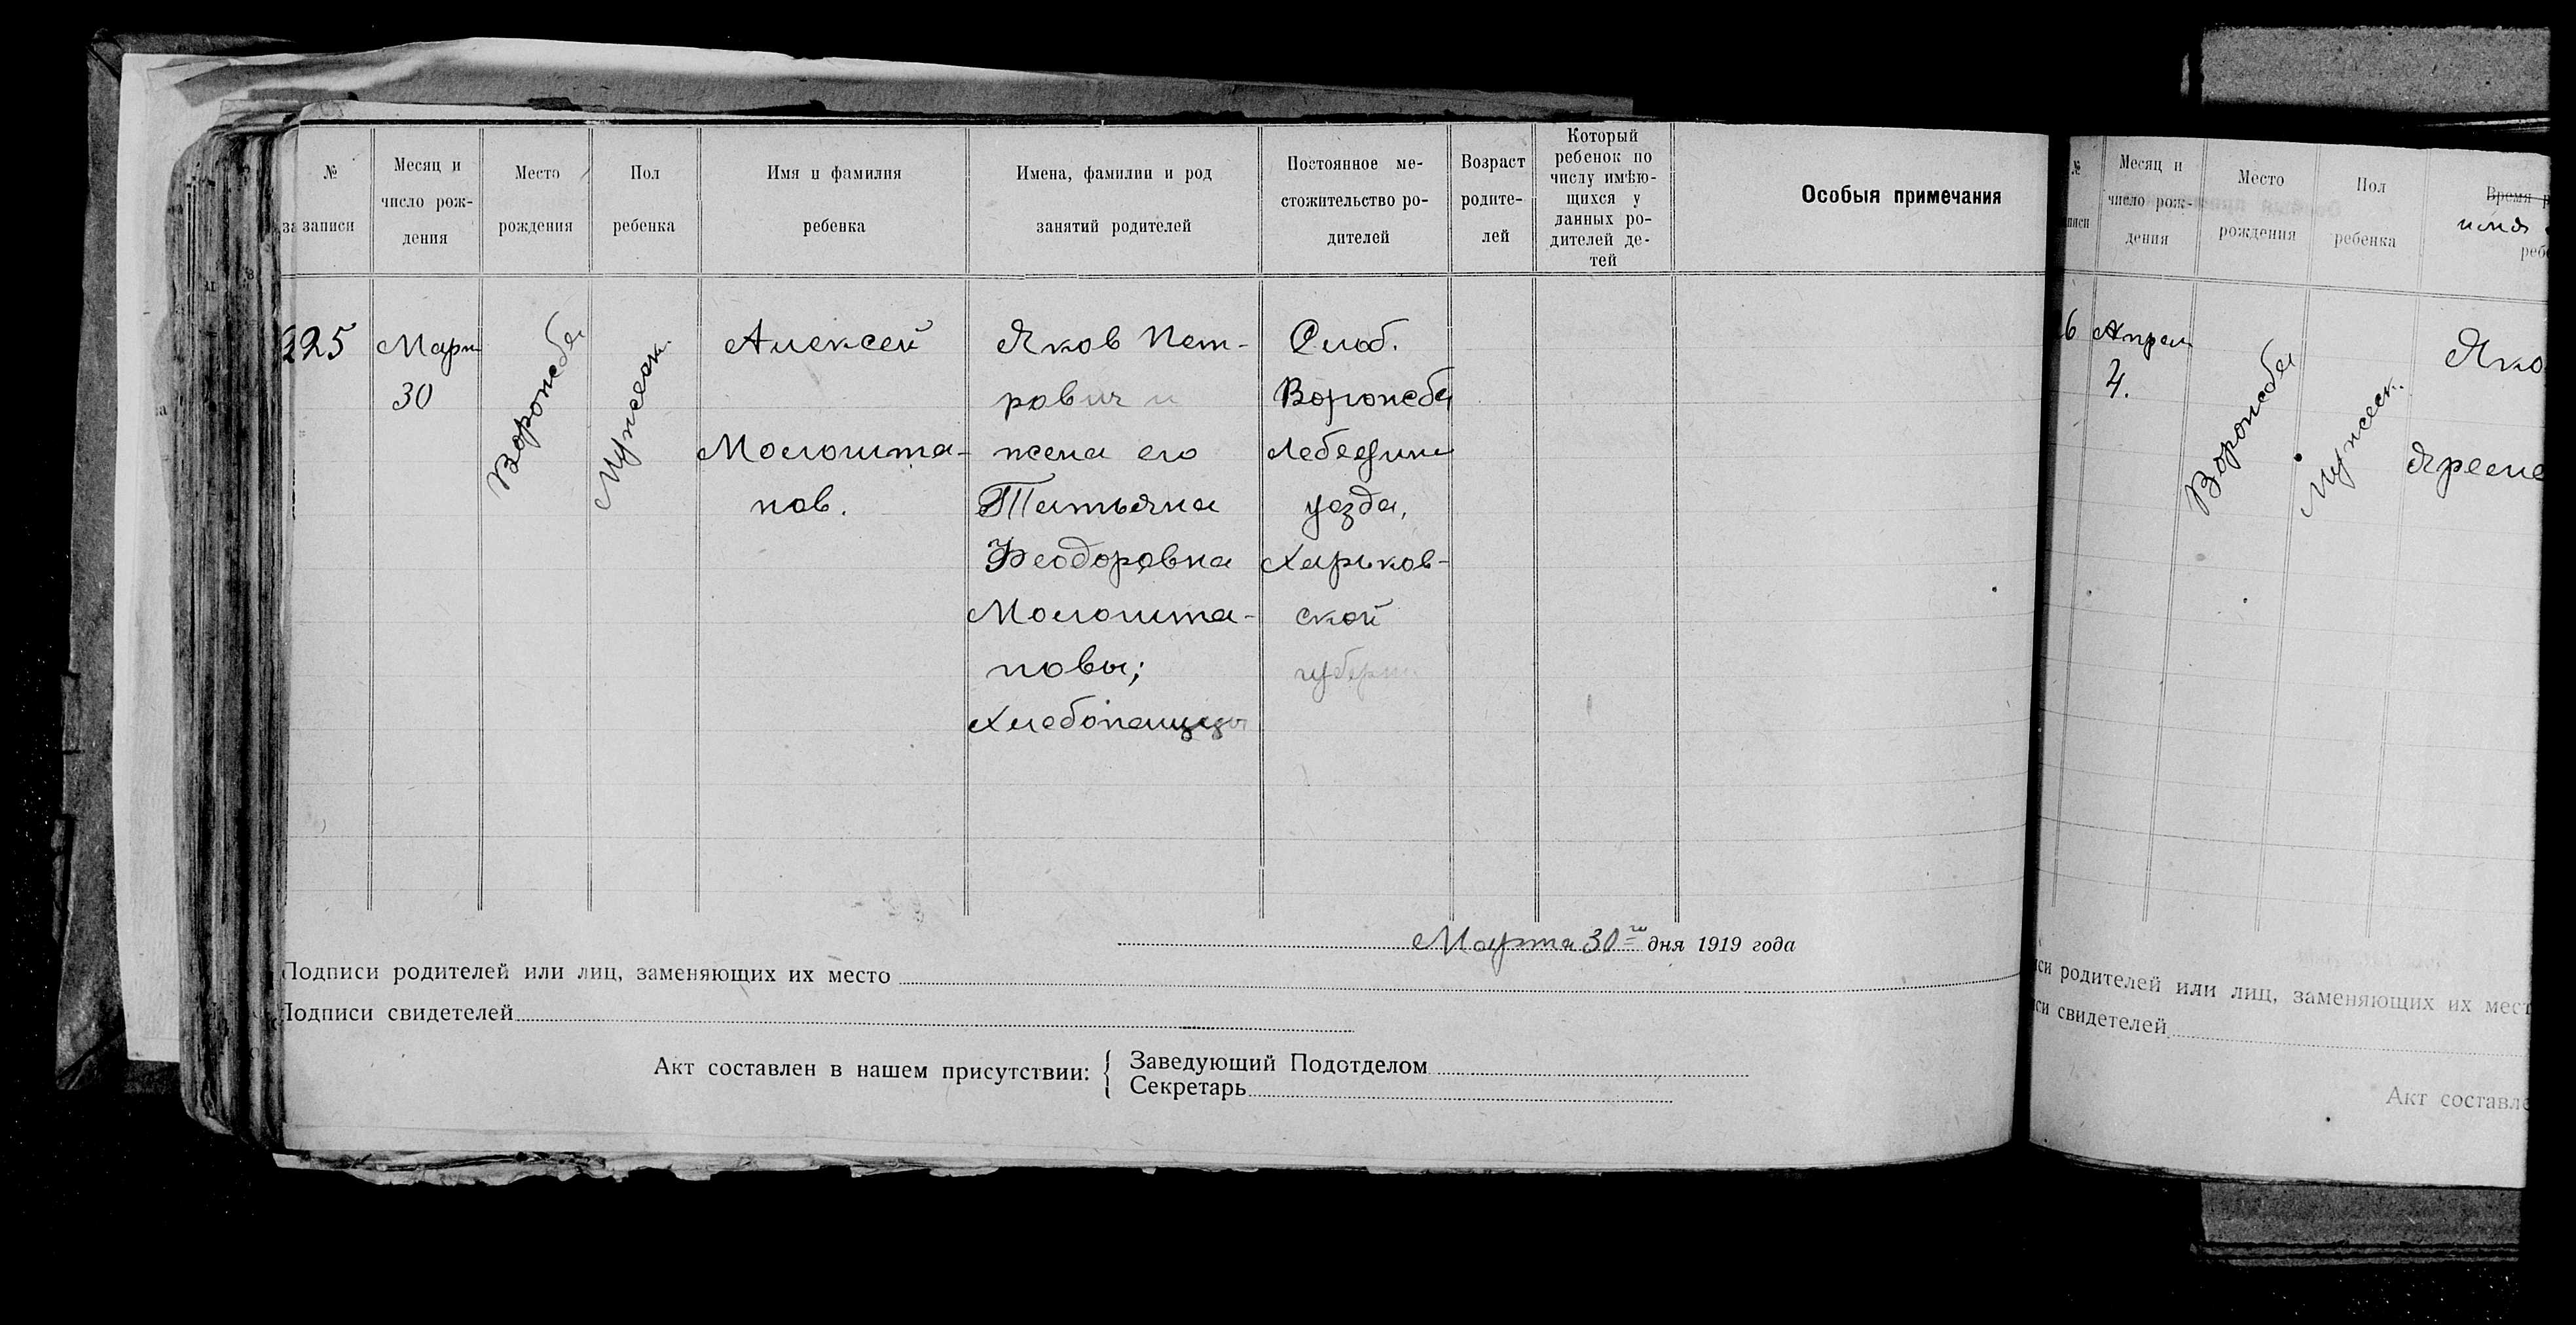 №
записи
Месяц и
число рож-
дения
Место
рождения
Пол
ребенка
Имя и фамилия
ребенка
Имена, фамилии и род
занятий родителей
Постоянное ме-
стожительство ро-
дителей
Возраст
родите-
лей
Который
ребенок по
числу имѣю-
щихся у
данных ро-
дителей де-
тей
Особыя примечания
225
Март
30
Ворожба
Мужеск.
Алексей
Молошта-
нов.
Яков Пет-
рович и
жена его
Татьяна
Феодоровна
Молошта-
новы;
Хлебопашцы
Слоб.
Ворожба
Лебедин
уезда,
Харьков-
ской
губерн
Марта 30го дня 1919 года
Подписи родителей или лиц, заменяющих их место
Подписи свидетелей
Акт составлен в нашем присутствии:
Заведующий Подотделом
Секретарь
№
Месяц и
число рож-
дения
Место
рождения
Пол
ребенка
Время
имя
6
Апрел
4.
Ворожба
Мужеск.
Яко
Яреме
родителей или лиц, заменяющих их мест
свидетелей
Акт составле